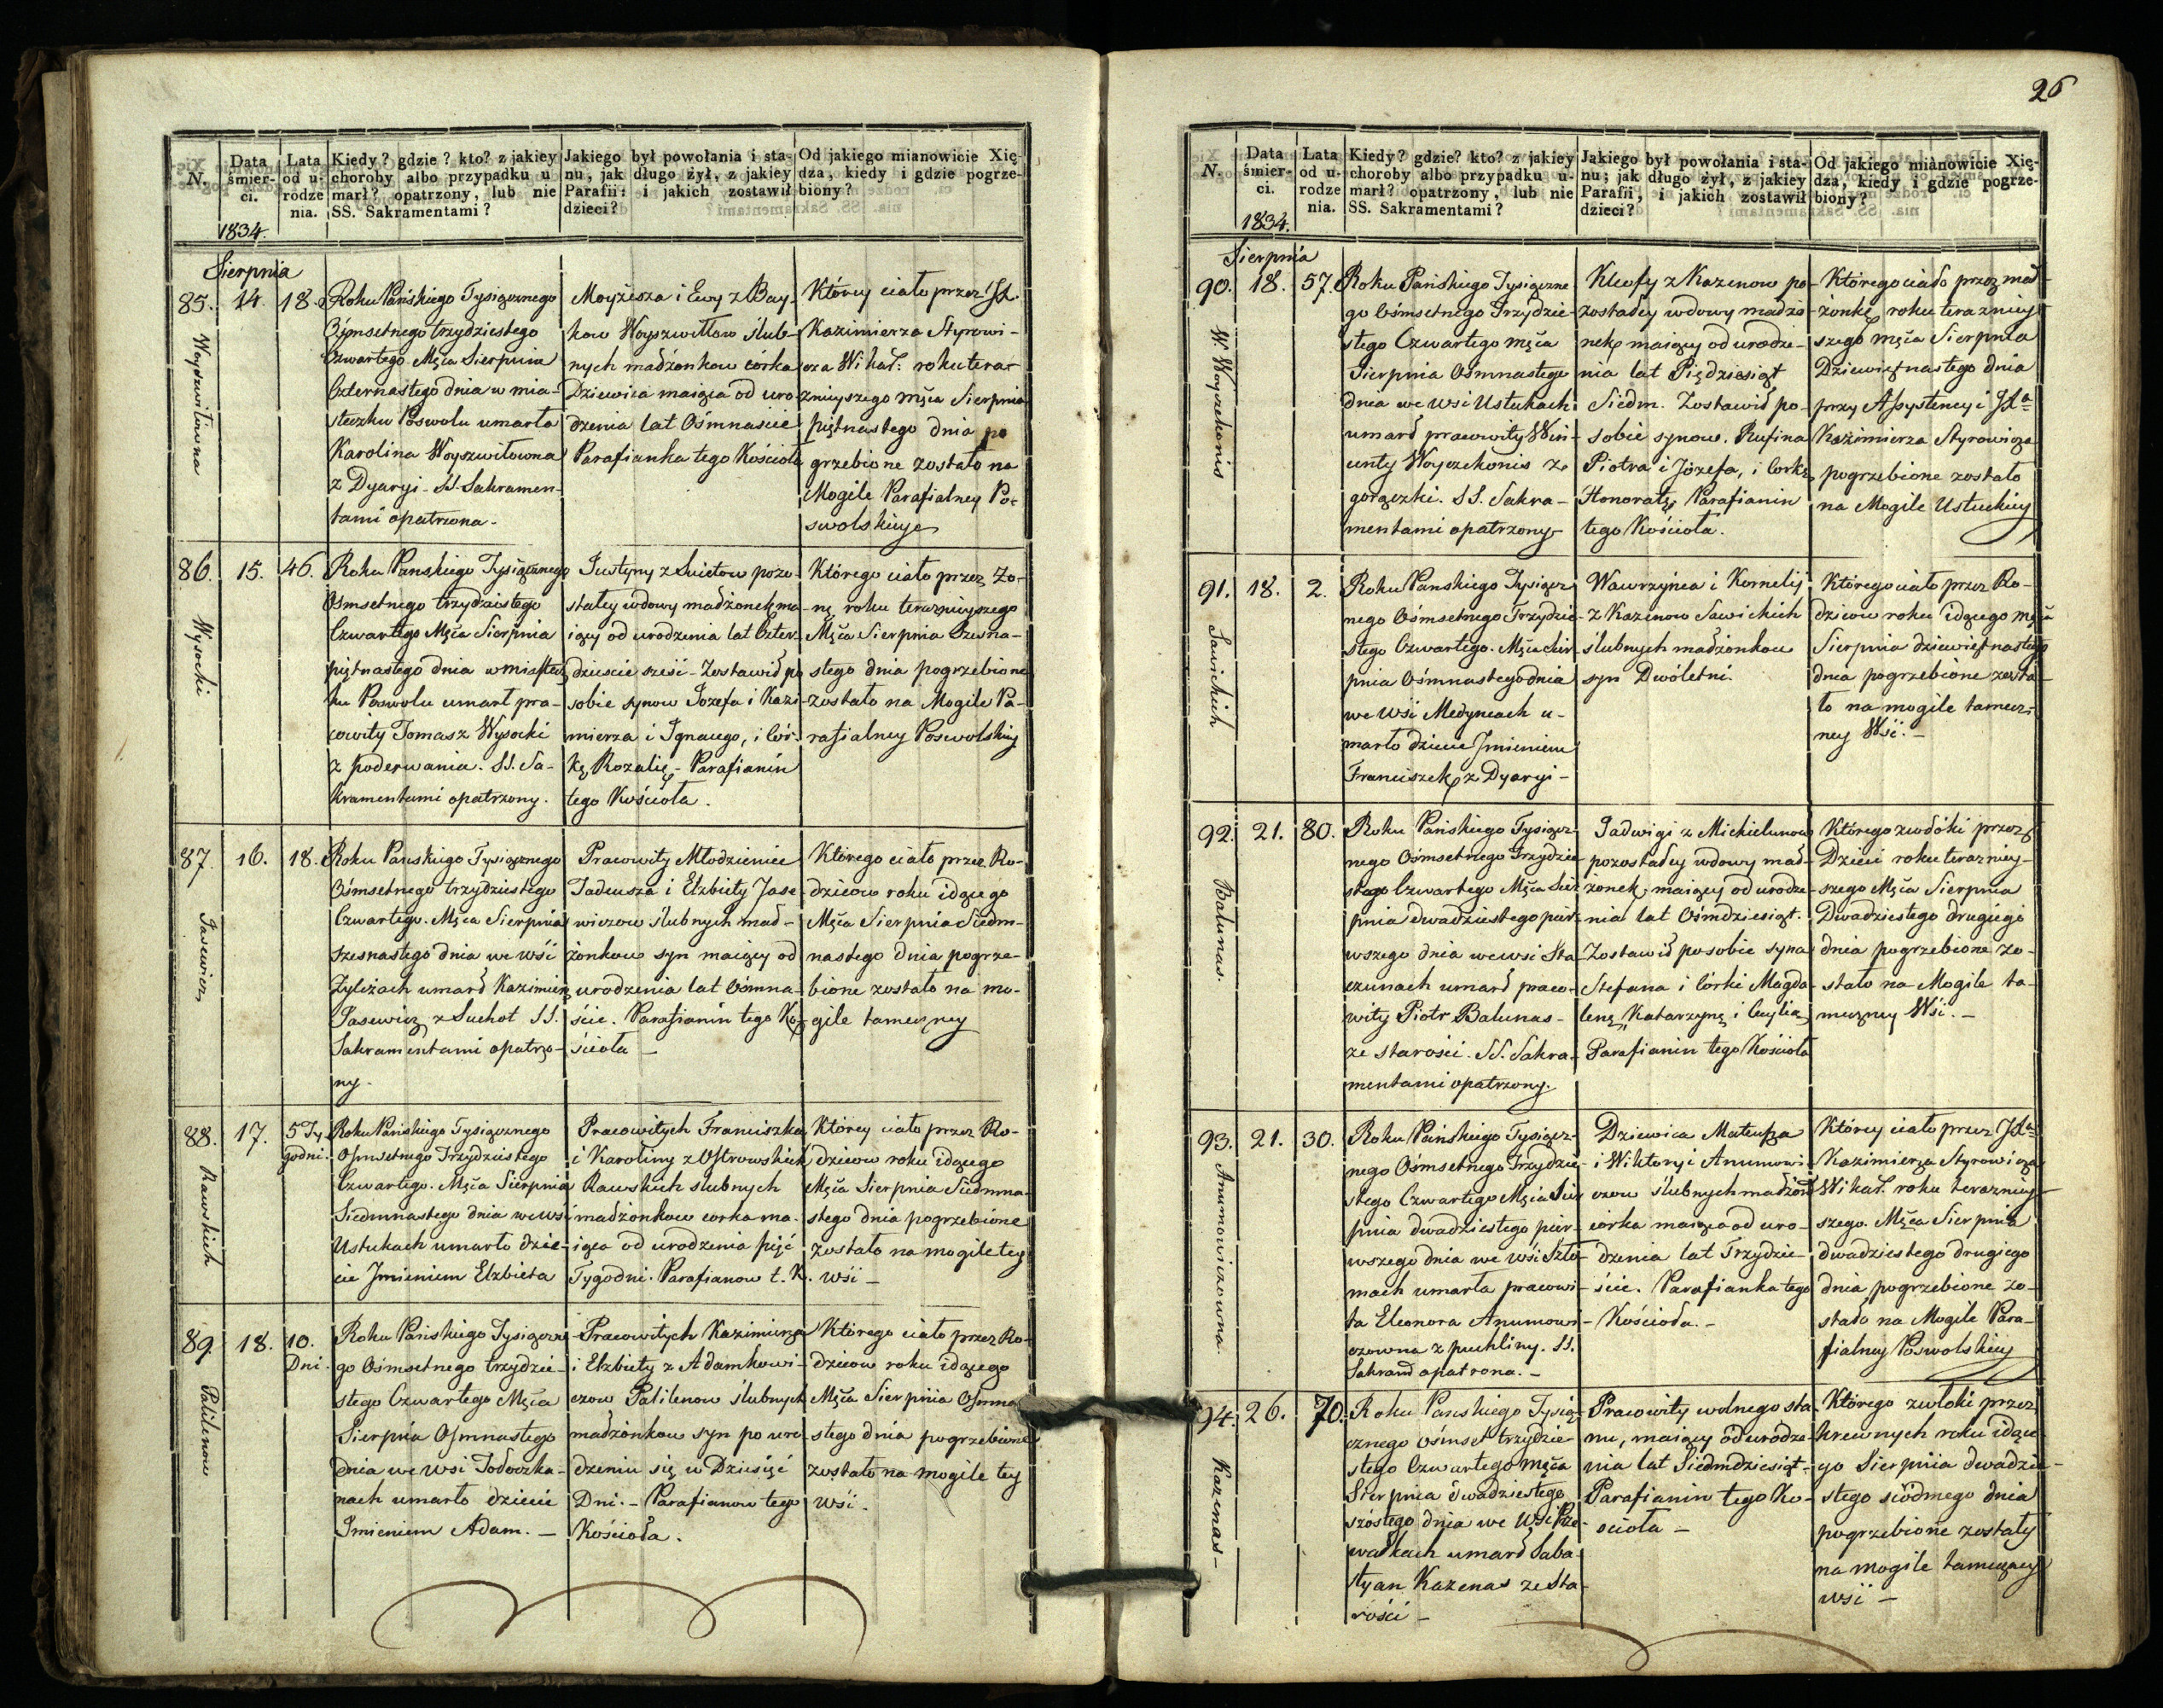 N.
Data śmier-
ci.
1834.
Lata
od u-
rodze
nia.
Kiedy? gdzie? kto? z jakiey
choroby albo przypadku u
marł? opatrzony, lub nie
SS. Sakramentami?
Jakiego był powołania i sta-
nu, jak długo żył, z jakiey
Parafii: i jakich zostawił
dzieci?
Od jakiego mianowicie Xię-
dza, kiedy i gdzie pogrze-
biony?
Sierpnia
85. 14. 18.
Woyszwiłowna
Roku Pańskiego Tysiącznego
Ośmsetnego trzydziestego
Czwartego Mca Sierpnia
Czternastego dnia w mia-
steczku Poswolu umarła
Karolina Woyszwiłowna
z Dyaryi - SS Sakramen-
tami opatrzona -
Moyżesza i Ewy z Bay-
kow Woyszwiłłow ślub-
nych małżonkow córka
Dziewica maiąca od uro
dzenia lat Ośmnaście
Parafianka tego Kościoła
Którey ciało przez JX.
Kazimierza Styrowi-
cza Wikar: roku tera-
znieyszego Mca Sierpnia
piętnastego dnia po
grzebione zostało na
Mogile Parafialney Po-
swolskiey
86. 15. 46.
Wysocki
Roku Panskiego Tysiącznego
Osmsetnego trzydziestego
Czwartego Mca Sierpnia
piętnastego dnia w miastecz
ku Poswolu umarł pra-
cowity Tomasz Wysocki
z poderwania. SS. Sa-
kramentami opatrzony.
Justyny z Swietow pozo-
stałey wdowy małżonek ma
iący od urodzenia lat Czter-
dzieście sześć - Zostawił po
sobie synow Jozefa i Kazi-
mierza i Ignacego, i Cór-
kę Rozalię - Parafianin
tego Kościoła.
Którego ciało przez Żo-
nę roku teraznieyszego
Mca Sierpnia Szesna-
stego dnia pogrzebione
zostało na Mogile Pa-
rafialney Poswolskiey
87. 16. 18.
Jasewicz
Roku Panskiego Tysiącznego
Ośmsetnego trzydziestego
Czwartego. Mca Sierpnia
szesnastego dnia we wśi
Zyliżach umarł Kazimierz
Jasewicz z Suchot SS.
Sakramentami opatrzo-
ny.
Pracowity Młodzieniec
Tadeusza i Elzbiety Jase
wiczow ślubnych mał-
żonkow syn maiący od
urodzenia lat Ośmna-
ście. Parafianin tego Ko-
ścioła -
Którego ciało przez Ro-
dzicow roku idącego
Mca Sierpnia Siedm-
nastego dnia pogrze-
bione zostało na mo-
gile tameczney
88. 17. 5 Ty
godni.
Rawskich
Roku Pańskiego Tysiącznego
Osmsetnego Trzydziestego
Czwartego. Mca Sierpnia
Siedmnastego dnia we wsi
Ustukach umarło dzie-
cie Jmieniem Elzbieta
Pracowitych Franciszka
i Karoliny z Ostrowskich
Rawskich slubnych
małżonkow corka ma-
iąca od urodzenia pięć
Tygodni. Parafianow t. K.
Którey ciało przez Ro-
dzicow roku idącego
Mca Sierpnia Siedmna-
stego dnia pogrzebione
zostało na mogile tey
wśi -
89. 18. 10.
Dni.
Palilenow
Roku Pańskiego Tysiączne
go Ośmsetnego trzydzie-
stego Czwartego Mca
Sierpnia Osmnastego
dnia we wsi
nach umarło dziecie
Jmieniem Adam. -
Pracowitych Kazimierza
i Elzbiety z Adamkowi-
czow Palilenow ślubnych
małżonkow syn po uro
dzeniu się w Dziesięć
Dni. - Parafianow tego
Kościoła.
Którego ciało przez Ro-
dzicow roku idącego
Mca Sierpnia Osmna
stego dnia pogrzebione
zostało na mogile tey
wśi.
26
N.
Data
śmier-
ci.
1834.
Lata
od u-
rodze
nia.
Kiedy? gdzie? kto? z jakiey
choroby albo przypadku u-
marł? opatrzony, lub nie
SS. Sakramentami?
Jakiego był powołania i sta-
nu; jak długo żył, z jakiey
Parafii, i jakich zostawił
dzieci?
Od jakiego mianowicie Xię-
dza, kiedy i gdzie pogrze-
biony?
Sierpnia
90. 18. 57.
W. Woyczekonis
Roku Pańskiego Tysiączne
go Ośmsetnego Trzydzie-
stego Czwartego mca
Sierpnia Osmnastego
dnia we wsi Ustukach
umarł pracowity Win-
centy Woyczekonis z
gorączki. SS. Sakra-
mentami opatrzony
Kleofy z Kazenow po
zostałey wdowy małżo
nek maiący od urodze-
nia lat Pięcdziesiąt
Siedm. Zostawił po-
sobie synow. Rufina
Piotra i Jozefa, i Corkę
Honoratę Parafianin
tego Kościoła.
Którego ciało przez mał-
żonkę roku terazniey
szego mca Sierpnia
Dziewiętnastego dnia
przy Assystencyi JXa
Kazimierza Styrowicza
pogrzebione zostało
na Mogile Ustuckiey
91. 18. 2.
Sawickich
Roku Panskiego Tysiącz-
nego Ośmsetnego Trzydzie
stego Czwartego. Mca Sier
pnia Ośmnastego dnia
we wśi Medyneach u-
marło dziecie Jmieniem
Franciszek z Dyaryi -
Wawrzyńca i Kornelij
z Kazenow Sawickich
ślubnych małżonkow
syn Dwóletni.
Którego ciało przez Ro-
dzicow roku idącego Mca
Sierpnia dziewiętnastego
dnia pogrzebione zosta-
ło na mogile tamecz-
ney Wśi. -
92. 21. 80.
Balunas.
Roku Pańskiego Tysiącz-
nego Ośmsetnego Trzydzie
stego Czwartego Mca Sier
pnia dwadziestego pier-
wszego dnia we wsi Sta-
czunach umarł praco-
wity Piotr Balunas -
ze starości. SS. Sakra-
mentami opatrzony.
Jadwigi z Mickielunow
pozostałey wdowy mał-
żonek, maiący od urodze
nia lat Ośmdziesiąt.
Zostawił po sobie syna
Stefana i Córki Magda
lenę, Katarzynę i Cecylią
Parafianin tego Kościoła
Którego zwłóki przez
Dzieci roku terazniey-
szego Mca Sierpnia
Dwadziestego drugiego
dnia pogrzebione zo-
stało na Mogile ta-
meczney Wśi. -
93. 21. 30.
Anumowiczowna.
Roku Pańskiego Tysiącz-
nego Ośmsetnego Trzydzie-
stego Czwartego Mca Sier
pnia dwadziestego pier-
wszego dnia we wśi
mach umarła pracowi-
ta Eleonora Anumowi-
czowna z puchliny. SS.
Sakram opatrona. -
Dziewica Mateusza
i Wiktoryi Anumowi-
czow ślubnych małżon
córka maiąca od uro-
dzenia lat Trzydzie-
ście. Parafianka tego
Kościoła. -
Którey ciało przez JXa
Kazimierza Styrowicza
Wikar. roku teraźniey-
szego. Mca Sierpnia
dwadziestego drugiego
dnia pogrzebione zo-
stało na Mogile Para-
fialney Poswolskiey
94. 26. 70.
Kazenas -
Roku Panskiego Tysią-
cznego ośmset trzydzie-
stego Czwartego mca
Sierpnia dwadziestego
szóstego dnia we wsi
wałkach umarł Saba-
styan Kazenas ze sta-
rości -
Pracowity wolnego sta
nu, maiący od urodze-
nia lat Siedmdziesiąt -
Parafianin tego Ko-
ścioła -
Którego zwłoki przez
krewnych roku idące-
go Sierpnia dwadzie-
stego siódmego dnia
pogrzebione zostały
na mogile tameczney
wśi -